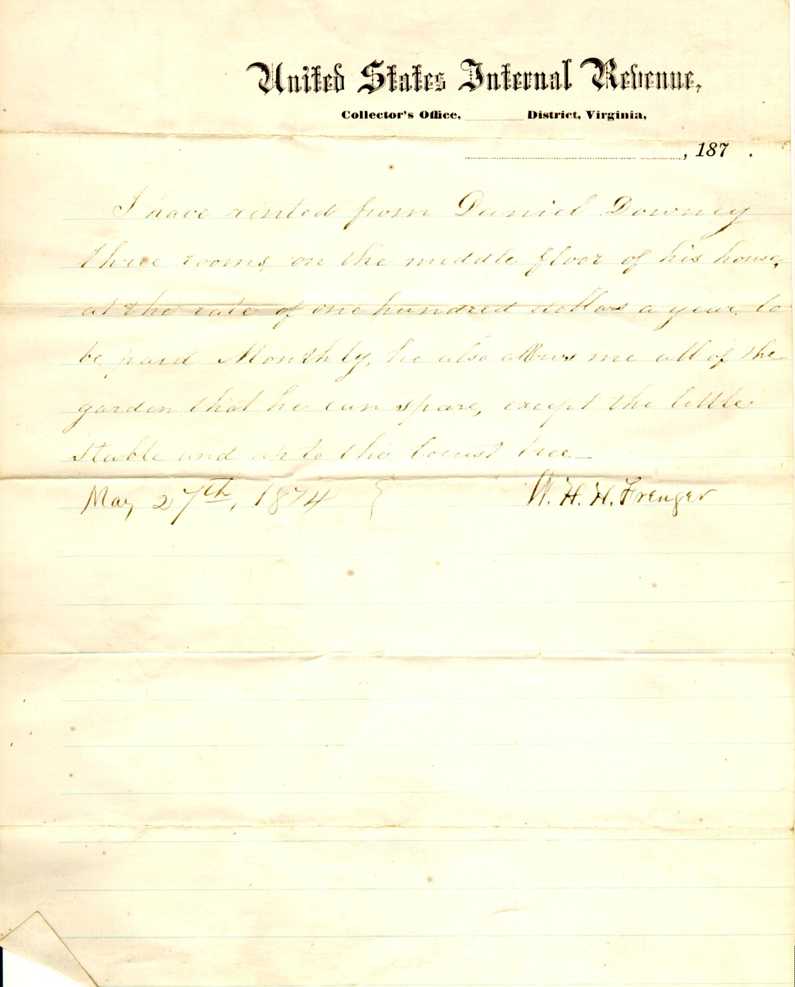 United States Internal Revenue,
Collector's Office, District, Virginia,
, 187 .
I have rented from Daniel Downey
three rooms on the middle floor of his house,
at the rate of one hundred dollars a year, to
be paid Monthly, he also allows me all of the
garden that he can spare, except the little
stable and up to the locust tree
May 27th, 1874
W. H. H. Frenger